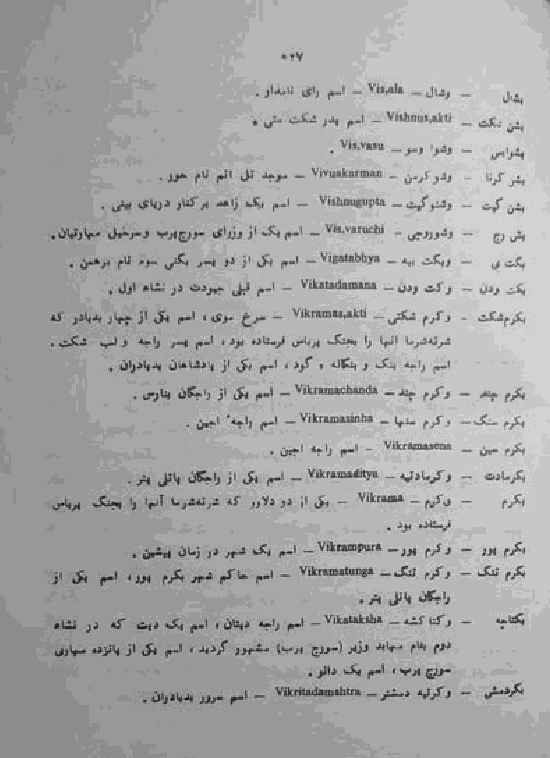 بشال — وشال — Vis,ala — اسم رای نامدار .
بشن شکت — Vishnus,akti — اسم پدر شکت متی .
بشواس — وشوا وسو — Vis,vasu .
بشر کرما — وشو کرمن — Vivuakarman — موجد تل اتم نام حور .
بشن گپت — وشنو گپت — Vishnugupta — اسم یک زاهد بر کنار دریای بینی .
بش رچ — وشوروچی — Vis,varachi — اسم یک از وزرای سورج‌پرب و سرخیل مهارتهان .
بگت بی — ویگت بیه — Vigatabhya — اسم یکی از دو پسر یگنی سوم نام برهمن .
بکت ودن — وکت ودن — Vikatadamana — اسم فیلی جهودت در نشاه اول .
بکرم‌شکت — وکرم شکتی — Vikramas,akti — سرخ موی ، اسم یکی از چهار بهادر که
شرته‌شرما آنها را بجنگ پرباس فرستاده بود ، اسم پسر راجه ولب شکت .
اسم راجه بنک و بنگاله و گود ، اسم یکی از پادشاهان بدیادران .
بکرم چند — وکرم چند — Vikramachanda — اسم یکی از راجگان بنارس .
بکرم سنگ — وکرم سنها — Vikramasinha — اسم راجهٔ اجین .
بکرم سین — Vikramasena — اسم راجه اجین .
بکرمادت — وکرمادتیه — Vikramaditya — اسم یکی از راجگان پاتلی پتر .
بکرم — وکرم — Vikrama — یکی از دو دلاور که شرته‌شرما آنها را بجنگ پرباس
فرستاده بود .
بکرم پور — وکرم پور — Vikrampura — اسم یک شهر در زمان پیشین .
بکرم تنگ — وکرم تنگ — Vikramatunga — اسم حاکم شهر بکرم پور ، اسم یکی از
راجگان پاتلی پتر .
بکتاچه — وکتا کشه — Vikataksha — اسم راجه دیتان ، اسم یک دیت که در نشاه
دوم بنام سهابد وزیر (سورج پرب) مشهور گردید ، اسم یکی از پانزده مهارتی
سورج پرب ، اسم یک دانو .
بکردمش — وکرتیه دمشتر — Vikritadamahtra — اسم سرور بدیادران .